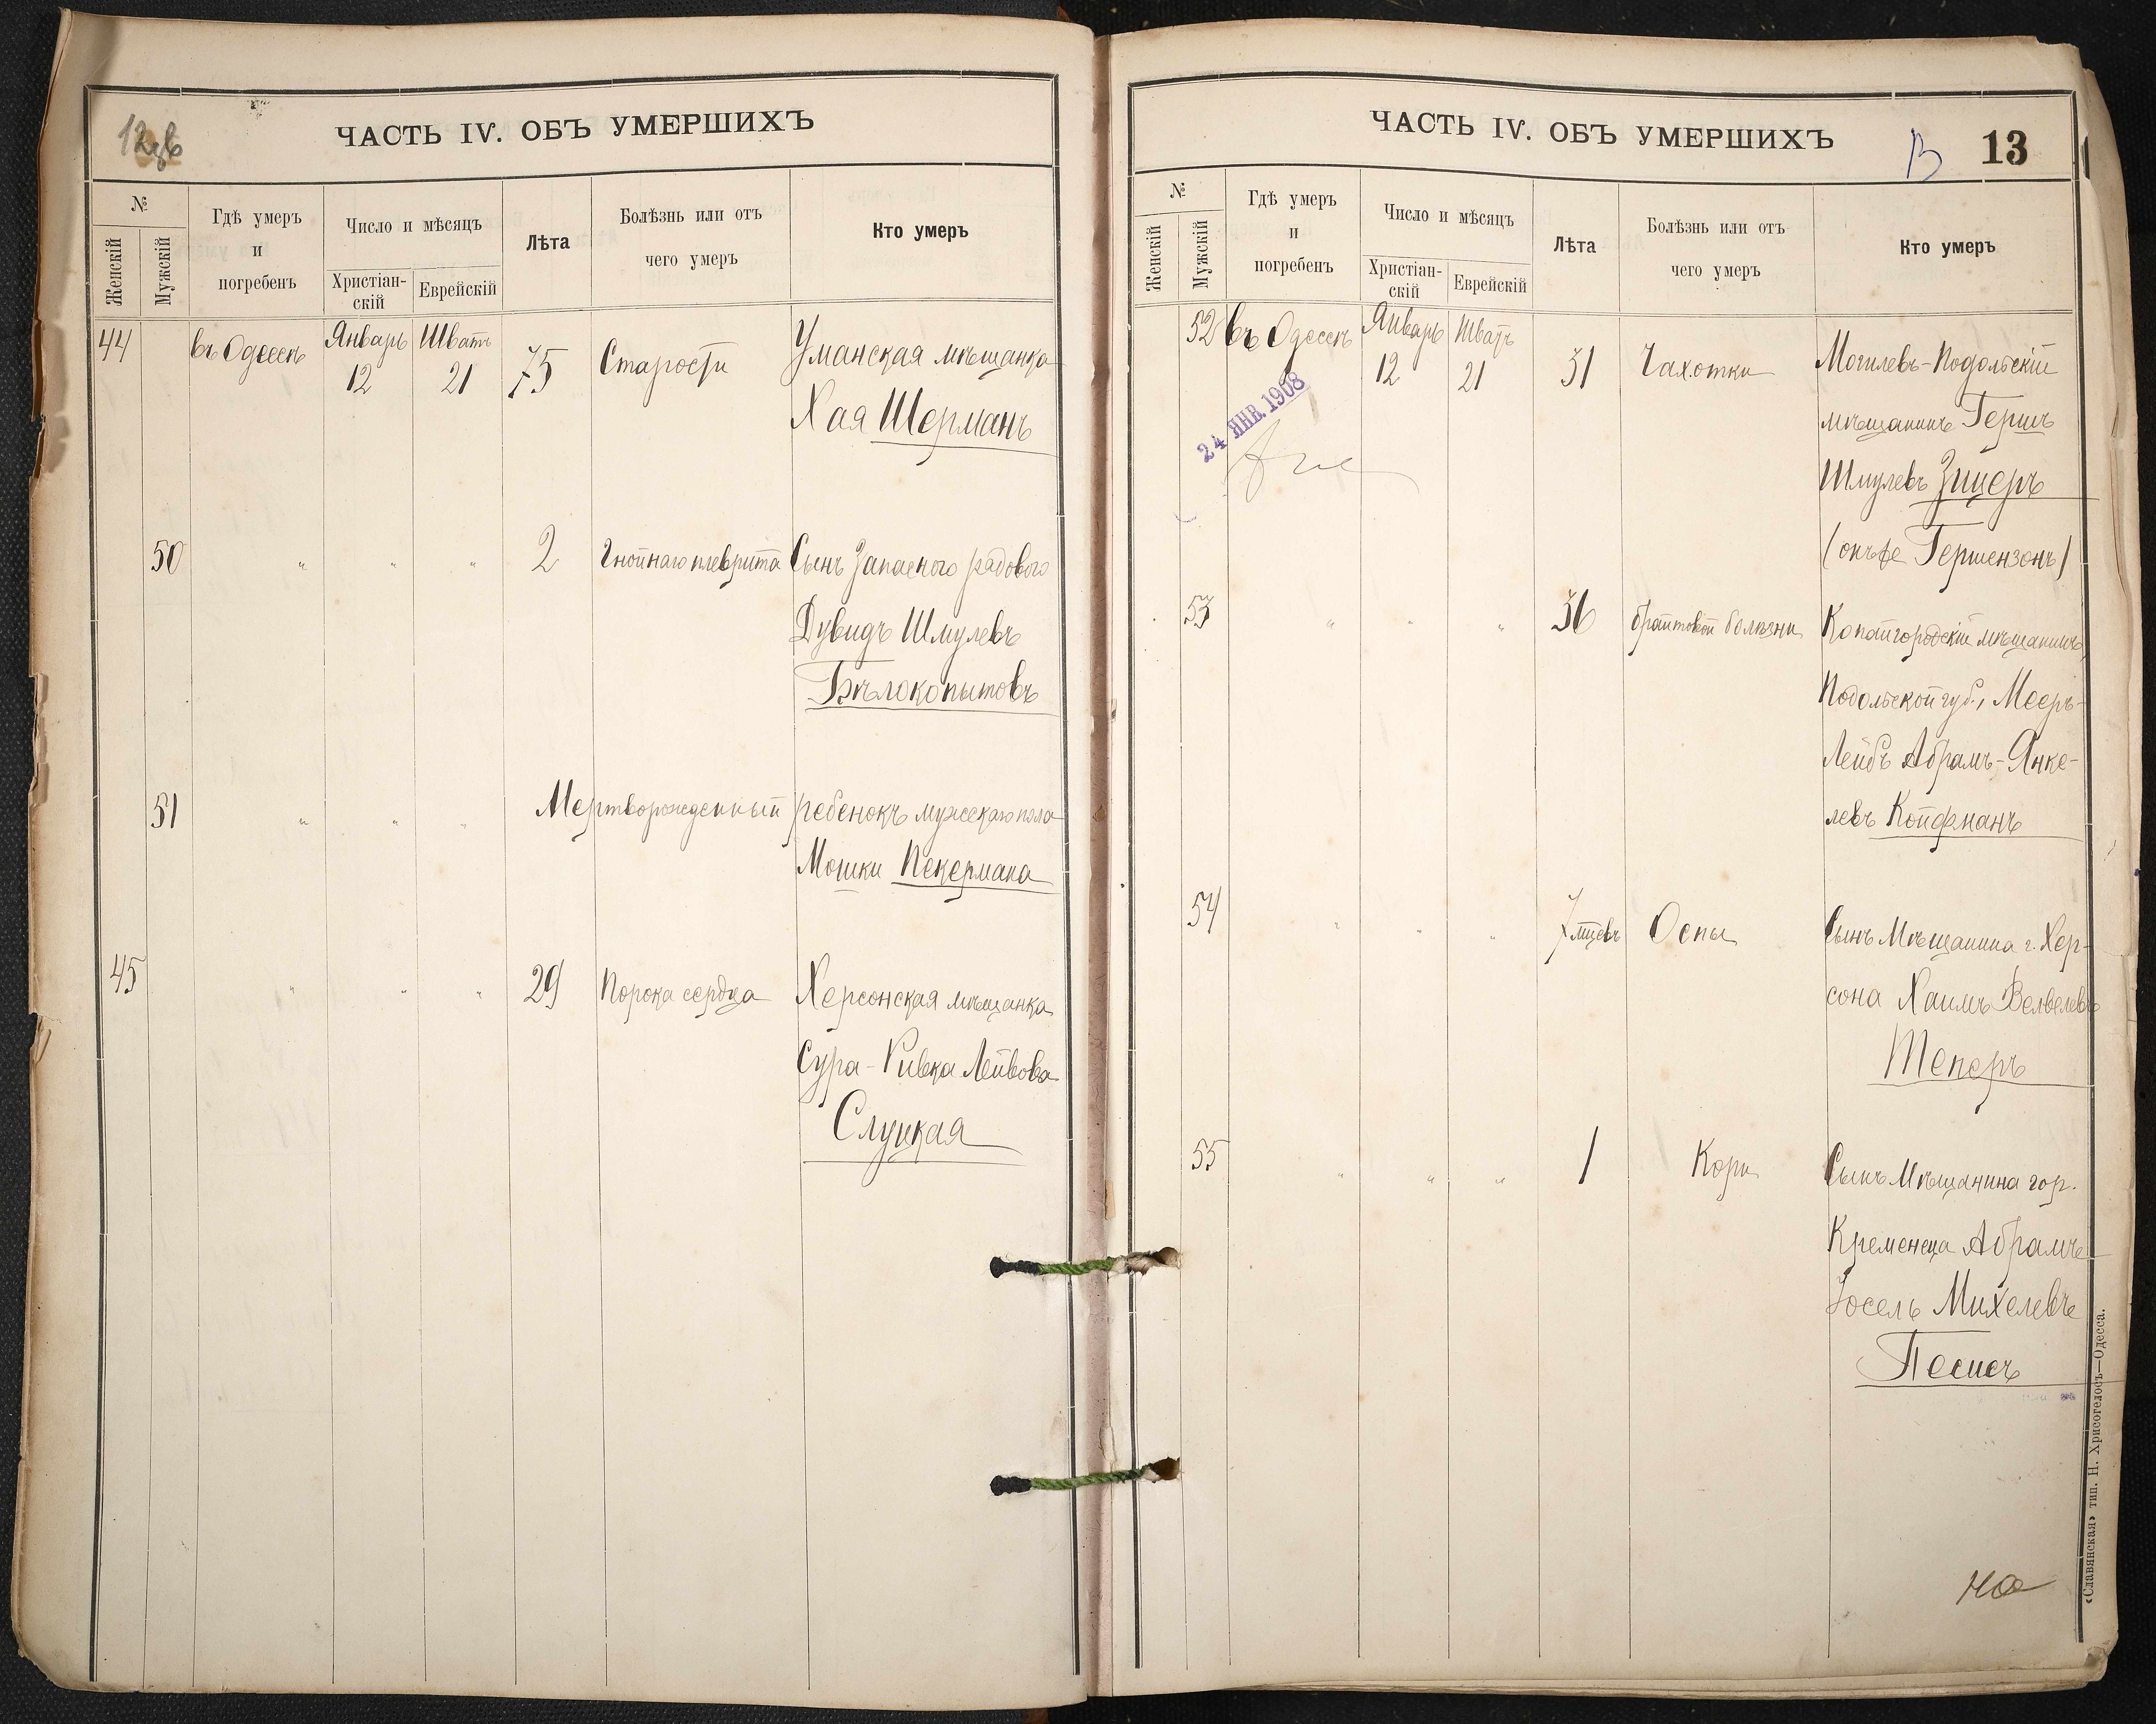 12 об
ЧАСТЬ IV. ОБЪ УМЕРШИХЪ
№
Женскій
Мужскій
Гдѣ умеръ
и
погребенъ
Число и мѣсяцъ
Христіан-
скій
Еврейскій
Лѣта
Болѣзнь или отъ
чего умеръ
Кто умеръ
44 въ Одессѣ Январь 12 Шватъ 21 75 Старости Уманская мѣщанка
Хая Шерманъ
50 " " " 2 Гнойнаго плеврита Сынъ Запасного рядового
Дувидъ Шмулевъ
Бѣлокопытовъ
51 " " " Мертворожденный ребенокъ мужескаго пола
Мошки Пекермана
45 " " " 29 Порока сердца Херсонская мѣщанка
Сура-Ривка Лейбова
Слуцкая
ЧАСТЬ IV. ОБЪ УМЕРШИХЪ
13
№
Женскій
Мужскій
Гдѣ умеръ
и
погребенъ
Число и мѣсяцъ
Христіан-
скій
Еврейскій
Лѣта
Болѣзнь или отъ
чего умеръ
Кто умеръ
52 въ Одессѣ Январь 12 Шватъ 21 31 Чахотки Могилевъ-Подольскій
мѣщанинъ Гершъ
Шмулевъ Зицеръ
(онъ же Гершензонъ)
24 ЯНВ. 1908
53 " " " 36 брайтовой болѣзни Копайгородскій мѣщанинъ,
Подольской губ., Мееръ-
Лейбъ Абрамъ-Янке-
левъ Койфманъ
54 " " " 7 мцевъ Оспы Сынъ Мѣщанина г. Хер-
сона Хаимъ Велвелевъ
Теперъ
55 " " " 1 Кори Сынъ Мѣщанина гор.
Кременеца Абрамъ
Іосель Михелевъ
Песисъ
«Славянская» тип. Н. Хрисогелосъ—Одесса.